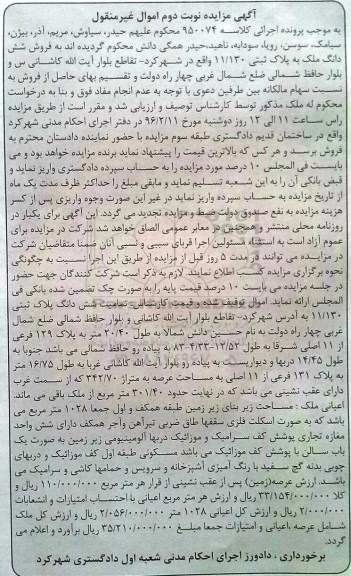 آگهی مزایده نوبت دوم اموال غیرمنقول
به موجب پرونده اجرائی کلاسه ۹۵۰۰۷۴ محکوم علیهم حیدر، سیاوش، مریم، آذر، بیژن،
سیامک، سوسن، رویا، سودابه، ناهید، حیدر همگی دانش محکوم گردیده اند به فروش شش
دانگ ملک به پلاک ثبتی ۱۱/۱۳۰ واقع در شهرکرد- تقاطع بلوار آیت الله کاشانی س و
بلوار حافظ شمالی ضلع شمال غربی چهار راه دولت و تقسیم بهای حاصل از فروش به
نسبت سهام مالکانه بین طرفین دعوی با توجه به عدم انجام مفاد فوق و بنا به درخواست
محکوم له ملک مذکور توسط کارشناس توصیف و ارزیابی شد و مقرر است از طریق مزایده
راس ساعت ۱۱ الی ۱۲ روز دوشنبه مورخ ۹۶/۲/۱۱ در دفتر اجرای احکام مدنی شهرکرد
واقع در ساختمان قدیم دادگستری طبقه سوم مزایده با حضور نماینده دادستان محترم به
فروش برسد و هر کس که بالاترین قیمت را پیشنهاد نماید برنده مزایده خواهد بود و می
بایست فی المجلس ۱۰ درصد مورد مزایده را به حساب سپرده دادگستری واریز نماید و
قبض بانکی آن را به این شعبه تسلیم نماید و مابقی مبلغ را حداکثر ظرف مدت یک ماه
از تاریخ مزایده به حساب سپرده واریز نماید در غیر این صورت وجوه واریزی پس از کسر
هزینه مزایده به نفع صندوق دولت ضبط و مزایده تجدید می گردد. این آگهی برای یکبار در
روزنامه محلی منتشر و همچنین در معابر عمومی الصاق خواهد شد شرکت در مزایده برای
عموم آزاد است به استثناء مسئولین اجرا قربای سببی و نسبی آنان ضمنا متقاضیان شرکت
در مزایده می توانند در مدت ۵ روز قبل از مزایده از طریق این اجرا نسبت به چگونگی
نحوه برگزاری مزایده کسب اطلاع نمایند. لازم به ذکر است شرکت کنندگان جهت حضور
در جلسه مزایده می بایست ۱۰ درصد قیمت پایه را به صورت چک تضمین شده بانکی فی
المجلس ارائه نماید. اموال توقیف شده و قیمت کارشناسی تمامیت شش دانگ پلاک ثبتی
۱۱/۱۳۰ به آدرس شهرکرد- تقاطع بلوار آیت الله کاشانی و بلوار حافظ شمالی ضلع شمال
غربی چهار راه دولت به نام حسین دانش شمالا به طول ۲۰/۴۰ متر به پلاک ۱۲۹ فرعی
از ۱۱ اصلی شرقا به طول ۱۳/۵۲-۴/۳۳-۸ به پیاده رو حافظ شمالی می باشد جنوبا به
طول ۱۴/۴۵ دربها و دیواریست به پیاده رو بلوار آیت الله کاشانی غربا به طول ۱۶/۷۵ متر
به پلاک ۱۳۱ فرعی از ۱۱ اصلی به مساحت عرصه به متراژ ۳۴۲/۷۰ که از سمت غرب
دارای عقب نشینی می باشد که در نهایت حدود ۳۰۱/۴۰ متر مربع از ملک باقی می ماند.
اعیانی ملک : مساحت زیر بنای زیر زمین طبقه همکف و اول جمعا ۱۰۲۸ متر مربع می
باشد که به صورت اسکلت فلزی سقفها طاق ضربی تیرآهن وآجر همکف دارای شش واحد
مغازه تجاری پوشش کف سرامیک و موزائیک دربها آلومینیومی زیر زمین به صورت یک
باب سالن با پوشش کف موزائیک می باشد مسکونی طبقه اول کف موزائیک و دربهای
چوبی بدنه گچ سفید با رنگ آمیزی آشپزخانه و سرویس و حمامها کاشی و سرامیک می
باشد. ارزش عرصه(زمین) پس از عقب نشینی از قرار هر متر مربع ۱۱۰/۰۰۰/۰۰۰ ریال و
کلا ۳۳/۱۵۴/۰۰۰/۰۰۰ ریال و ارزش هر متر مربع اعیانی با احتساب امتیازات و انشعابات
۲/۰۰۰/۰۰۰ ریال و ارزش کل اعیانی ۱۰۲۸ متر ۲/۰۵۶/۰۰۰/۰۰۰ ریال و ارزش کل ملک
شامل عرصه ،اعیانی و امتیازات جمعا مبلغ ۳۵/۲۱۰/۰۰۰/۰۰۰ ریال برآورد و اعلام می
گردد.
برخورداری ، دادورز اجرای احکام مدنی شعبه اول دادگستری شهرکرد